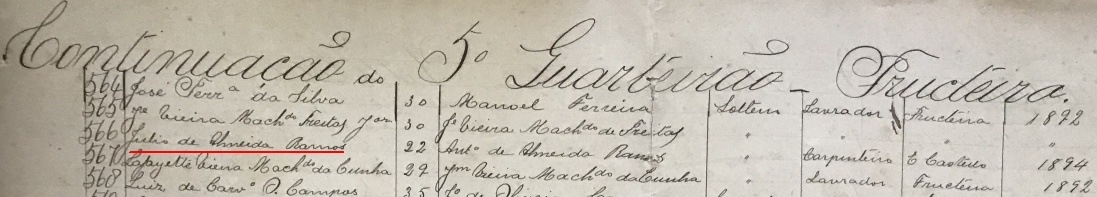 Continuação do 5º Quarteirão - Fructeira.
564 José Ferrª da Silva 30 Manoel Ferreira Solteiro Lavrador Fructeira 1892
565 Jé Vieira Machdo Freitas Jor 30 Jé Vieira Machdo de Freitas " " " "
566 Julio de Almeida Ramos 22 Antº de Almeida Ramos " Carpinteiro Castello 1894
567 Lafayette Vieira Machdo da Cunha 27 Vieira Machdo da Cunha " Lavrador Fructeira 1892
568 Luiz de Carvº Campos 35 de